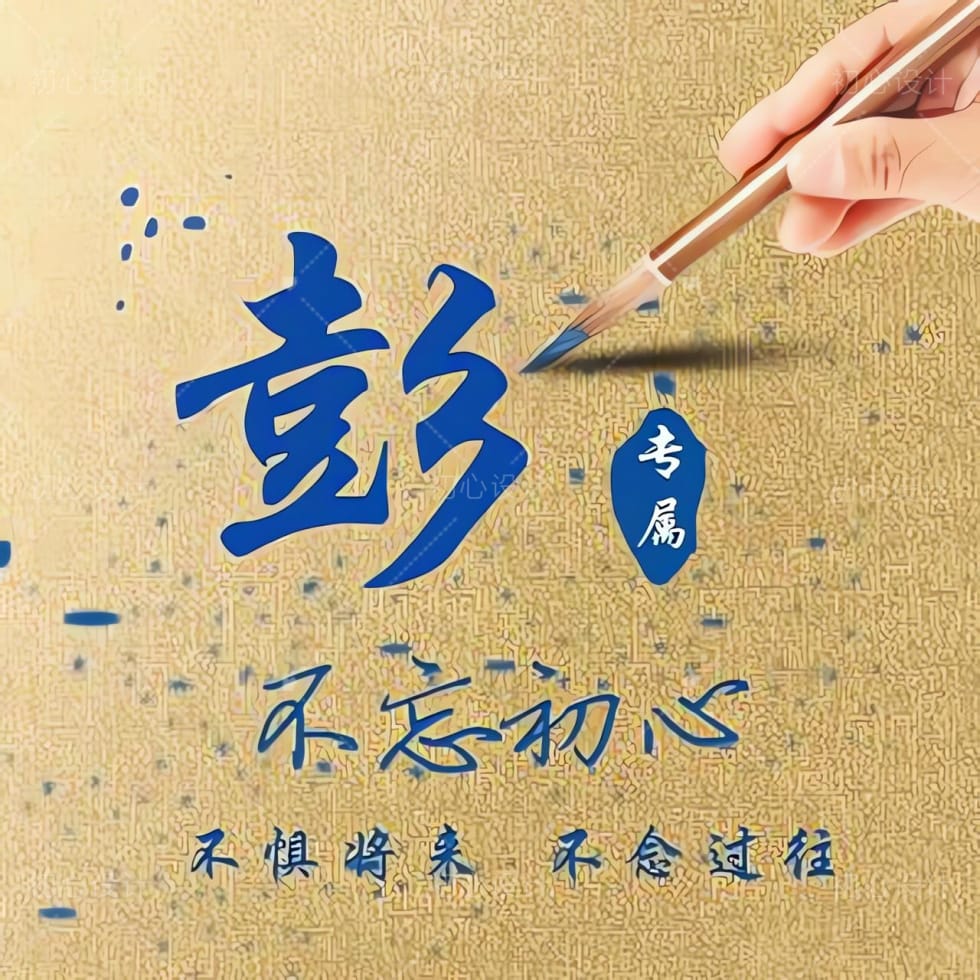 初心设计
初心设计
彭
专属
初心设计
不忘初心
不惧将来 不念过往